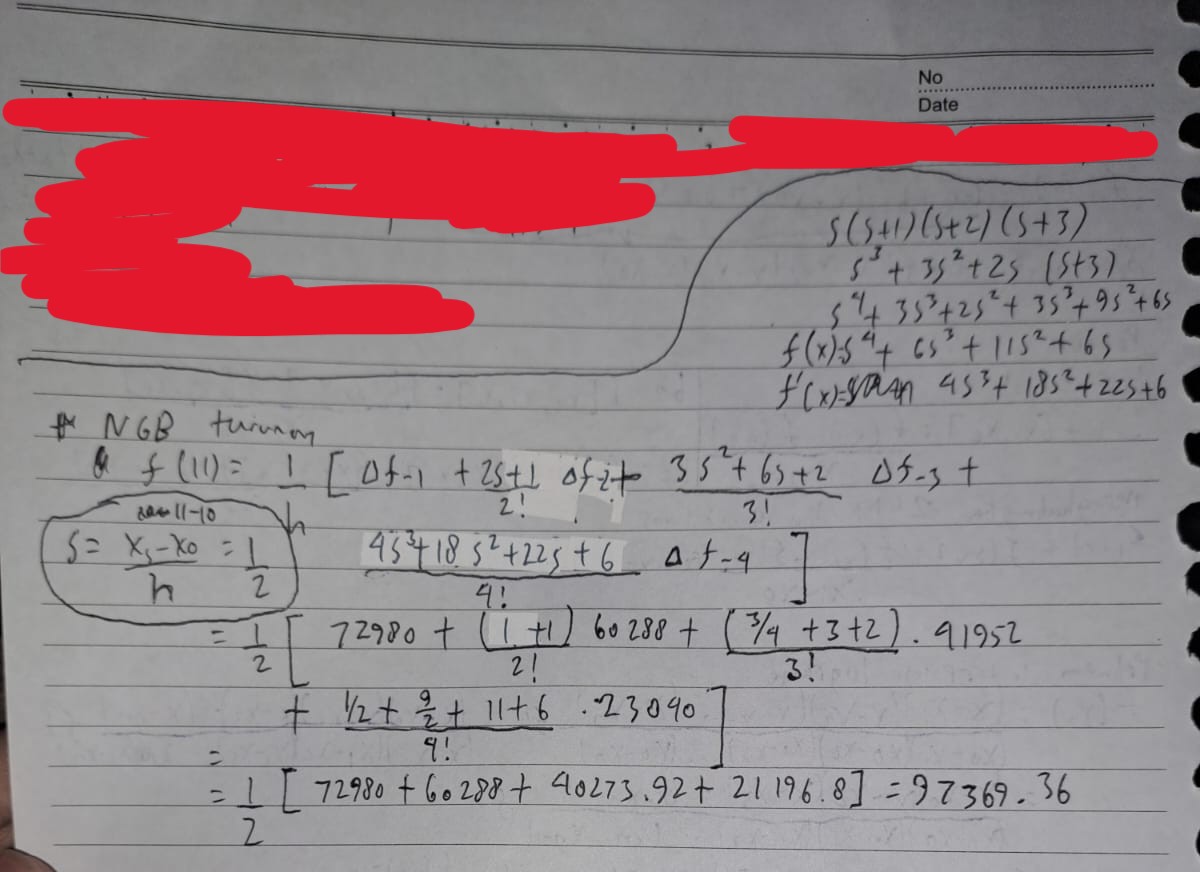 No
Date
s(s+1)(s+2)(s+3)
s³ + 3s² + 2s (s+3)
s⁴ + 3s³ + 2s² + 3s³ + 9s² + 6s
f(x)=s⁴ + 6s³ + 11s² + 6s
f'(x)= 4s³ + 18s² + 22s + 6
# NGB turunan
f(11) = 1/h [ Δf-1 + 2s+1/2! Δf-2 + 3s² + 6s + 2/3! Δf-3 +
11-10
S = xs - x0/h = 1/2
4s³ + 18s² + 22s + 6/4! Δf-4 ]
= 1/2 [ 72980 + (1+1)/2! 60288 + (3/4 + 3 + 2)/3! . 41952
+ 1/2 + 9/2 + 11 + 6/4! . 23040 ]
=
= 1/2 [ 72980 + 60288 + 40273.92 + 21196.8 ] = 97369.36